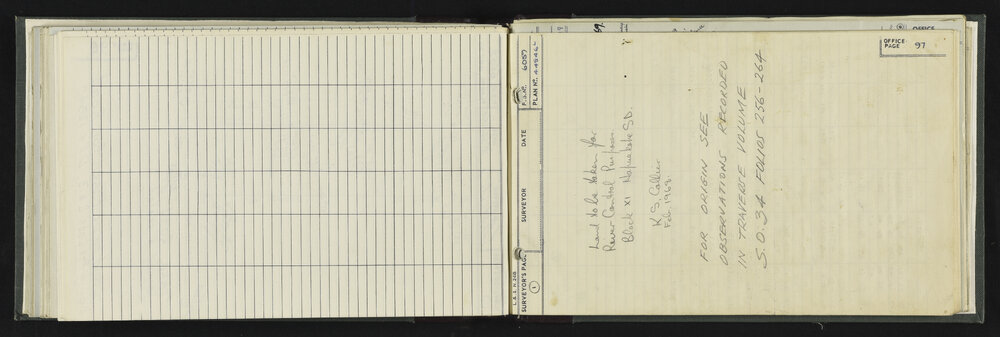 OFFICE PAGE 97
L. & S. H. 26B
SURVEYOR'S PAGE 1
SURVEYOR
DATE
F.B. No. 6057
PLAN No.
Land to be taken for
River Control Purposes
Block XI Hapuakohe S.D.
K. S. Collier
Feb. 1968
FOR ORIGIN SEE
OBSERVATIONS RECORDED
IN TRAVERSE VOLUME
S.O. 34 FOLIOS 256-264